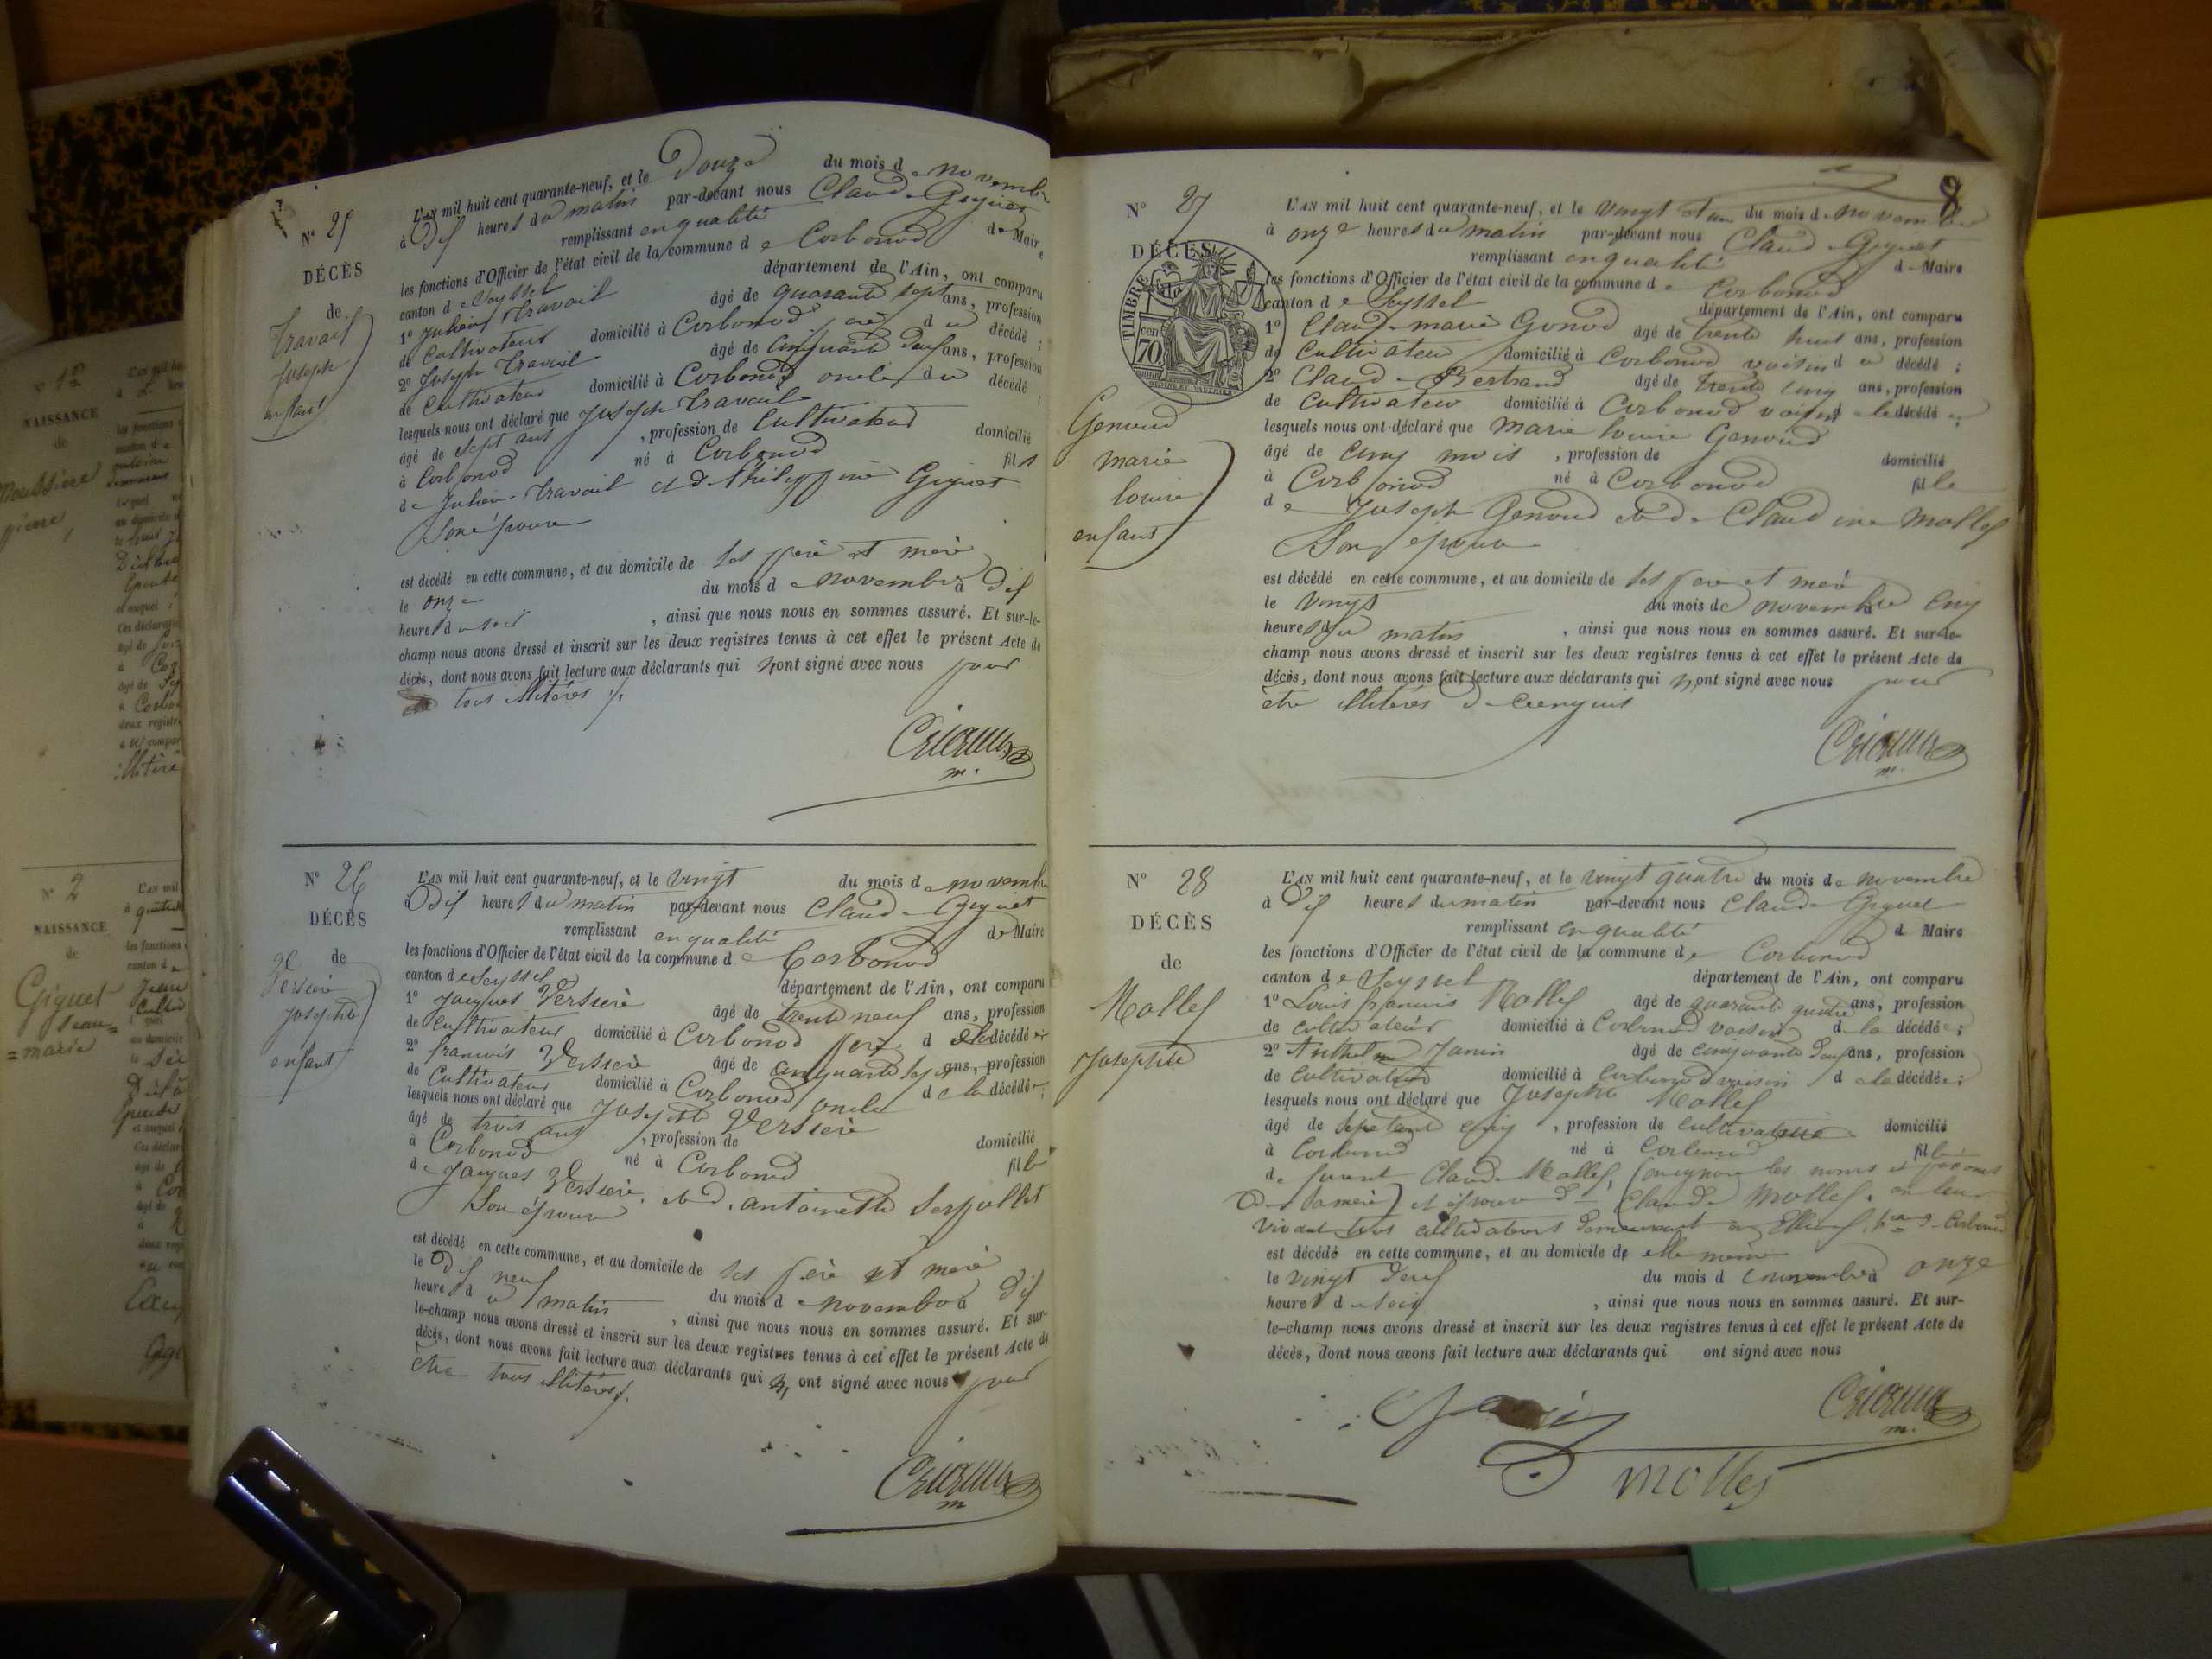 N° 25
DÉCÈS
de
Travail
Joseph
enfant
L'AN mil huit cent quarante-neuf, et le Douze du mois de novembre
à Dix heures du matin par-devant nous Claude Giguet
remplissant en qualité de Maire
les fonctions d'Officier de l'état civil de la commune de Corbonod
canton de Seyssel département de l'Ain, ont comparu
1° Julien Travail âgé de quarante sept ans, profession
de Cultivateur domicilié à Corbonod père du décédé ;
2° Joseph Travail âgé de cinquante deux ans, profession
de Cultivateur domicilié à Corbonod oncle du décédé ;
lesquels nous ont déclaré que Joseph Travail
âgé de sept ans , profession de Cultivateur domicilié
à Corbonod né à Corbonod fils
de Julien Travail et de Philippine Giguet
Son épouse
est décédé en cette commune, et au domicile de ses père et mère
le onze du mois de novembre à Dix
heures du soir , ainsi que nous nous en sommes assuré. Et sur-le-
champ nous avons dressé et inscrit sur les deux registres tenus à cet effet le présent Acte de
décès, dont nous avons fait lecture aux déclarants qui n'ont signé avec nous pour
tous illitérés
m.
N° 26
DÉCÈS
de
Versière
Josephte
enfant
L'AN mil huit cent quarante-neuf, et le vingt du mois de novembre
à Dix heures du matin par-devant nous Claude Giguet
remplissant en qualité de Maire
les fonctions d'Officier de l'état civil de la commune de Corbonod
canton de Seyssel département de l'Ain, ont comparu
1° Jacques Versière âgé de trente neuf ans, profession
de Cultivateur domicilié à Corbonod père de la décédée
2° francois Versière âgé de cinquante sept ans, profession
de Cultivateur domicilié à Corbonod oncle de la décédée ;
lesquels nous ont déclaré que Josephte Versière
âgé de trois ans , profession de domicilié
à Corbonod né à Corbonod fille
de Jacques Versière, et d'antoinette Serpollet
Son épouse
est décédé en cette commune, et au domicile de ses père et mère
le Dix neuf du mois de novembre à Dix
heures du matin , ainsi que nous nous en sommes assuré. Et sur-
le-champ nous avons dressé et inscrit sur les deux registres tenus à cet effet le présent Acte de
décès, dont nous avons fait lecture aux déclarants qui n'ont signé avec nous pour
être tous illitérés
m
N° 27
DÉCÈS
de
TIMBRE
cen
70
Genoud
marie
louise
enfant
L'AN mil huit cent quarante-neuf, et le vingt et un du mois de novembre
à onze heures du matin par-devant nous Claude Giguet
remplissant en qualité de Maire
les fonctions d'Officier de l'état civil de la commune de Corbonod
canton de Seyssel département de l'Ain, ont comparu
1° Claude marie Gonod âgé de trente huit ans, profession
de Cultivateur domicilié à Corbonod voisin du décédé ;
2° Claude Bertrand âgé de trente cinq ans, profession
de Cultivateur domicilié à Corbonod voisin de la décédée ;
lesquels nous ont déclaré que marie louise Genoud
âgé de Cinq mois , profession de domicilié
à Corbonod né à Corbonod fille
de Joseph Genoud et de Claudine Mollex
Son épouse
est décédé en cette commune, et au domicile de ses père et mère
le vingt du mois de novembre à Cinq
heures du matin , ainsi que nous nous en sommes assuré. Et sur-le-
champ nous avons dressé et inscrit sur les deux registres tenus à cet effet le présent Acte de
décès, dont nous avons fait lecture aux déclarants qui n'ont signé avec nous pour
être illitérés de ce enquis
m.
N° 28
DÉCÈS
de
Mollex
Josephte
L'AN mil huit cent quarante-neuf, et le vingt quatre du mois de novembre
à Dix heures du matin par-devant nous Claude Giguet
remplissant en qualité d Maire
les fonctions d'Officier de l'état civil de la commune de Corbonod
canton de Seyssel département de l'Ain, ont comparu
1° Louis francois Mollex âgé de quarante quatre ans, profession
de cultivateur domicilié à Corbonod voisin de la décédée ;
2° Anthelme Janin âgé de cinquante deux ans, profession
de Cultivateur domicilié à Corbonod voisin de la décédée ;
lesquels nous ont déclaré que Josephte Mollex
âgé de septante cinq , profession de Cultivatrice domicilié
à Corbonod né à Corbonod fille
de feu Claude Mollex, (on ignore les noms et prénoms
De sa mère) et épouse de Claude Mollex, en leur
vivant tous cultivateurs demeurant à Corbonod
est décédé en cette commune, et au domicile de elle même
le vingt deux du mois de novembre à onze
heures du soir , ainsi que nous nous en sommes assuré. Et sur-
le-champ nous avons dressé et inscrit sur les deux registres tenus à cet effet le présent Acte de
décès, dont nous avons fait lecture aux déclarants qui ont signé avec nous
m.
Mollex
N° 2
NAISSANCE
de
Giguet
Jean=
=marie